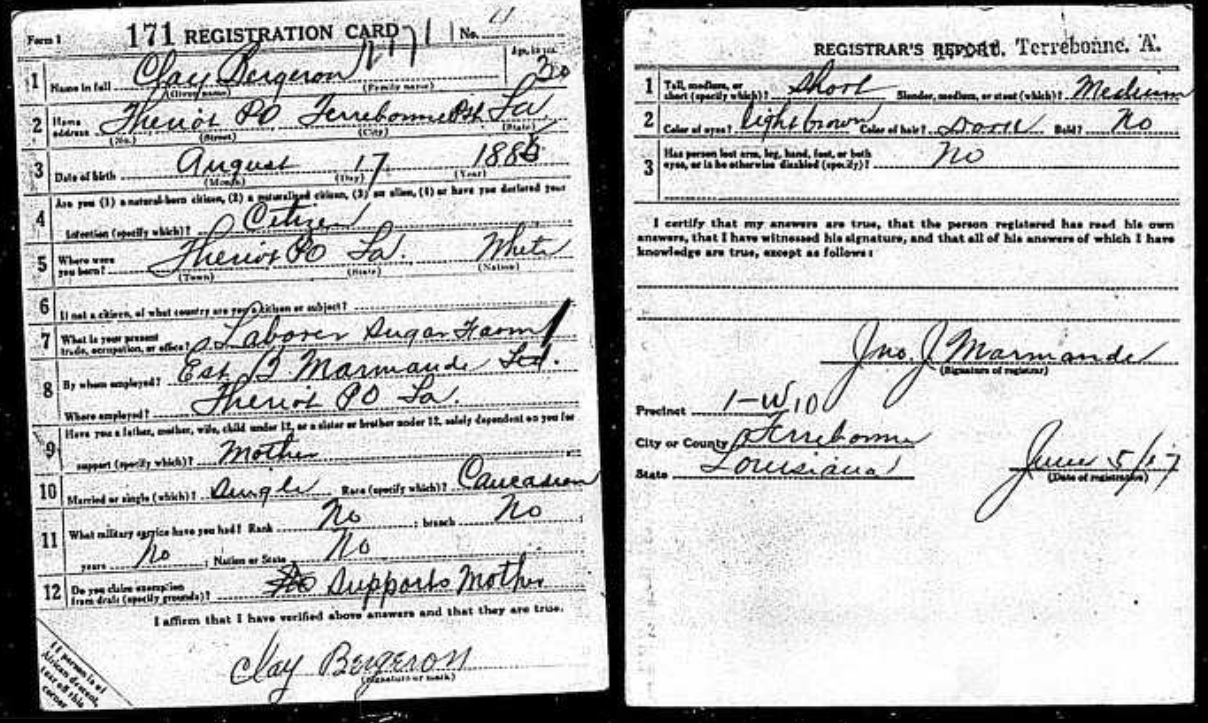 Form 1 171 REGISTRATION CARD No. 11
1 Name in full Clay Bergeron 171 Age, in yrs. 30
(Given name) (Family name)
2 Home address Theriot PO Terrebonne Psh La
(No.) (Street) (City) (State)
3 Date of birth August 17 1886
(Month) (Day) (Year)
4 Are you (1) a natural-born citizen, (2) a naturalized citizen, (3) an alien, (4) or have you declared your
intention (specify which)? Citizen
5 Where were you born? Theriot PO La. White
(Town) (State) (Nation)
6 If not a citizen, of what country are you a citizen or subject?
7 What is your present trade, occupation, or office? Laborer Sugar Farm
8 By whom employed? Est B Marmande Ltd.
Where employed? Theriot PO La.
9 Have you a father, mother, wife, child under 12, or a sister or brother under 12, solely dependent on you for
support (specify which)? Mother
10 Married or single (which)? Single Race (specify which)? Caucasian
11 What military service have you had? Rank No ; branch No ;
years No ; Nation or State No
12 Do you claim exemption from draft (specify grounds)? Supports Mother
I affirm that I have verified above answers and that they are true.
Clay Bergeron
(Signature or mark)
If person is of
African descent,
tear off this
corner
REGISTRAR'S REPORT. Terrebonne. A.
1 Tall, medium, or short (specify which)? Short Slender, medium, or stout (which)? Medium
2 Color of eyes? Light brown Color of hair? Dark Bald? No
3 Has person lost arm, leg, hand, foot, or both
eyes, or is he otherwise disabled (specify)? No
I certify that my answers are true, that the person registered has read his own
answers, that I have witnessed his signature, and that all of his answers of which I have
knowledge are true, except as follows:
Jno. J Marmande
(Signature of registrar)
Precinct 1-W 10
City or County Terrebonne
State Louisiana June 5/17
(Date of registration)